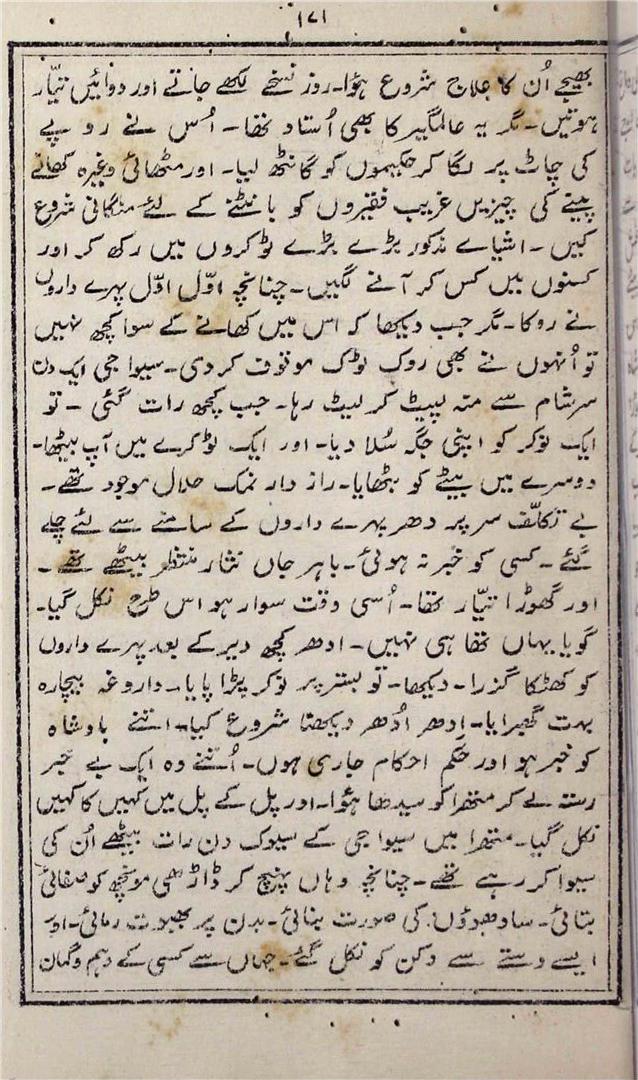 ۱۷۱
بھیجے اُن کا علاج شروع ہؤا۔ روز نسخے لکھے جاتے اور دوائیں تیّار
ہوتیں۔ مگر یہ عالمگیر کا بھی اُستاد تھا۔ اُس نے روپے
کی چاٹ پر لگا کر حکیموں کو گانٹھ لیا۔ اور مٹھائی وغیرہ کھانے
پینے کی چیزیں غریب فقیروں کو بانٹنے کے لئے منگانی شروع
کیں۔ اشیاے مذکور بڑے بڑے ٹوکروں میں رکھ کر اور
کسنوں میں کس کر آنے لگیں۔ چنانچہ اوّل اوّل پہرے داروں
نے روکا۔ مگر جب دیکھا کہ اس میں کھانے کے سوا کچھ نہیں
تو اُنہوں نے بھی روک ٹوک موقوف کر دی۔ سیوا جی ایک دن
سرشام سے منہ لپیٹ کر لیٹ رہا۔ جب کچھ رات گئی۔ تو
ایک نوکر کو اپنی جگہ سُلا دیا۔ اور ایک ٹوکرے میں آپ بیٹھا۔
دوسرے میں بیٹے کو بٹھایا۔ راز دار نمک حلال موجود تھے۔
بے تکلّف سر پر دھر پہرے داروں کے سامنے سے لئے چلے
گئے۔ کسی کو خبر نہ ہوئی۔ باہر جاں نثار منتظر بیٹھے تھے۔
اور گھوڑا تیّار تھا۔ اُسی وقت سوار ہو اس طرح نکل گیا۔
گویا یہاں تھا ہی نہیں۔ ادھر کچھ دیر کے بعد پہرے داروں
کو کھٹکا گذرا۔ دیکھا۔ تو بستر پر نوکر پڑا پایا۔ داروغہ بیچارہ
بہت گھبرایا۔ اِدھر اُدھر دیکھنا شروع کیا۔ اتنے بادشاہ
کو خبر ہو اور حکم احکام جاری ہوں۔ اُتنے وہ ایک بے خبر
رستہ لے کر متھرا کو سیدھا ہؤا۔ اور پل کے پل میں کہیں کا کہیں
نکل گیا۔ متھرا میں سیوا جی کے سیوک دن رات بیٹھے اُن کی
سیوا کر رہے تھے۔ چنانچہ وہاں پہنچ کر ڈاڑھی مونچھ کو صفائی
بتائی۔ سادھوؤں کی صورت بنائی۔ بدن پر بھبوت رمائی۔ اور
ایسے رستے سے دکن کو نکل گئے۔ جہاں سے کسی کے وہم و گمان